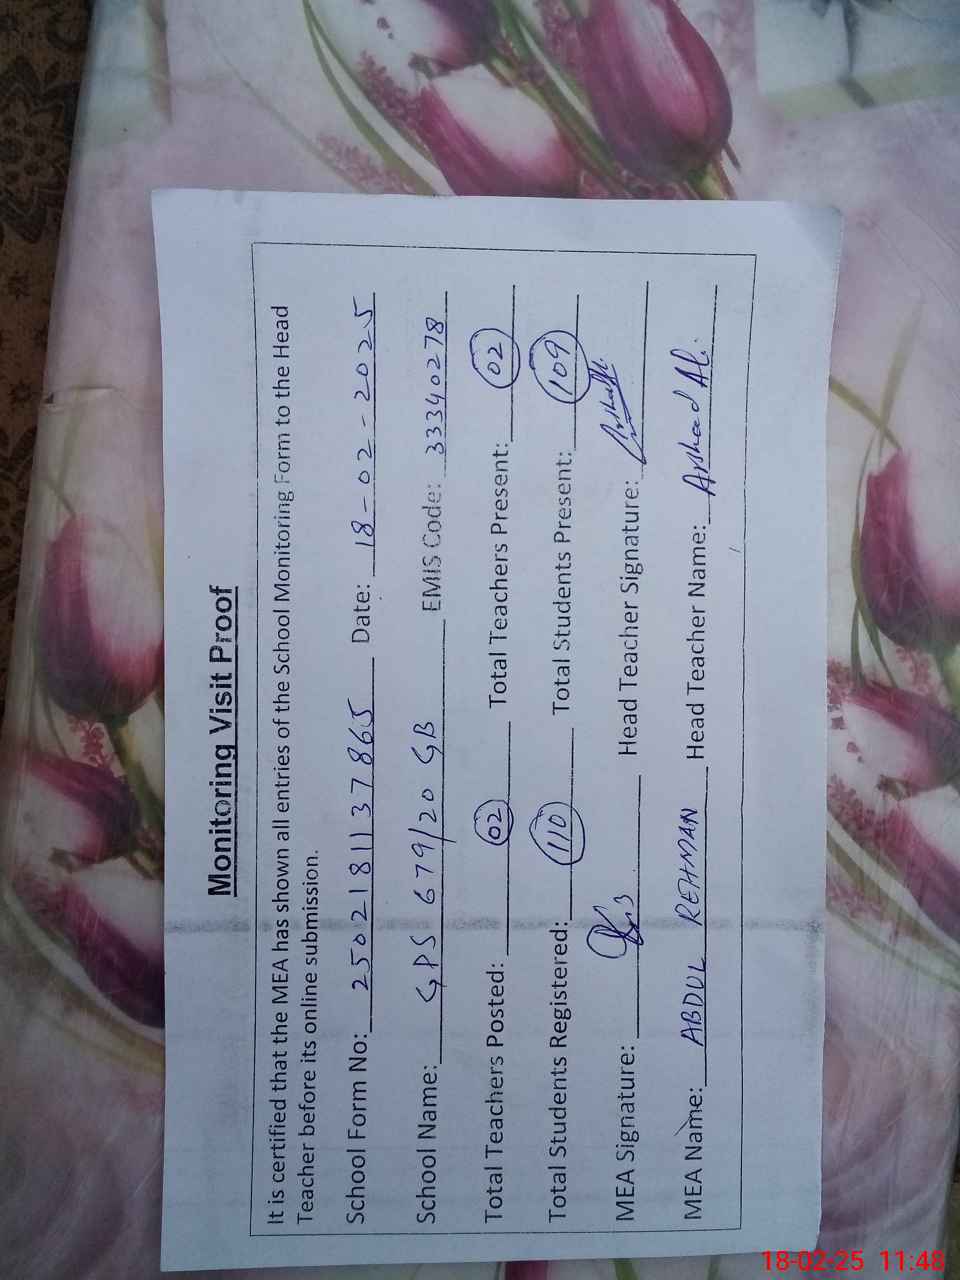 Monitoring Visit Proof
It is certified that the MEA has shown all entries of the School Monitoring Form to the Head
Teacher before its online submission.
School Form No: 250218113 7865 Date: 18-02-2025
School Name: GPS 679/20 GB EMIS Code: 33340278
Total Teachers Posted: 02 Total Teachers Present: 02
Total Students Registered: 110 Total Students Present: 109
MEA Signature: Head Teacher Signature:
MEA Name: ABDUL REHMAN Head Teacher Name: Arshad Ali
18-02-25 11:48